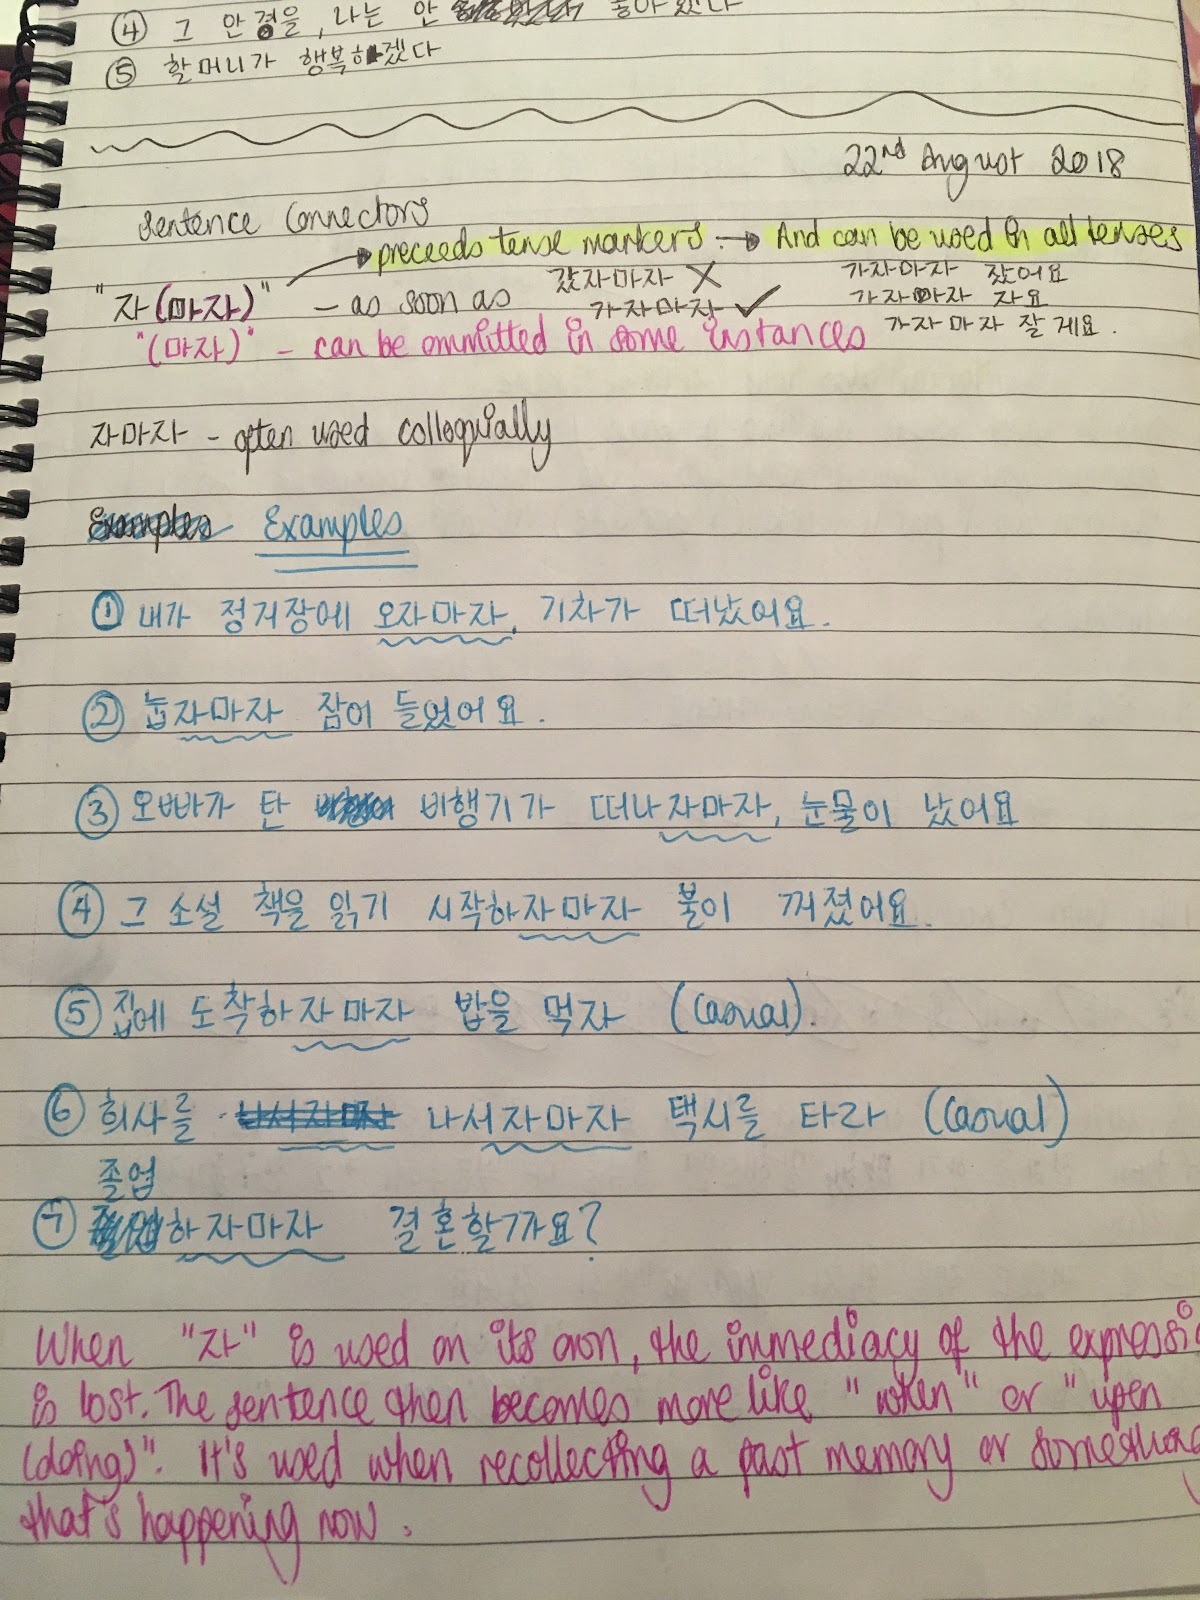 ④ 그 안경을, 나는 안 좋아 했다
⑤ 할머니가 행복하겠다
22nd August 2018
Sentence Connectors
→ preceeds tense markers. → And can be used in all tenses
"자(마자)" - as soon as 갔자마자 X 가자마자 잤어요
가자마자 ✓ 가자마자 자요
"(마자)" - can be ommitted in some instances 가자마자 잘게요.
자마자 - often used colloquially
Examples Examples
① 내가 정거장에 오자마자, 기차가 떠났어요.
② 눕자마자 잠이 들었어요.
③ 오빠가 탄 비행기가 떠나자마자, 눈물이 났어요
④ 그 소설 책을 읽기 시작하자마자 불이 꺼졌어요.
⑤ 집에 도착하자마자 밥을 먹자 (Casual).
⑥ 회사를 나서자마자 나서자마자 택시를 타라 (Casual)
졸업
⑦ 하자마자 결혼할까요?
When "자" is used on its own, the immediacy of the expressio
is lost. The sentence then becomes more like "when" or "upon
(doing)". It's used when recollecting a past memory or something
that's happening now.